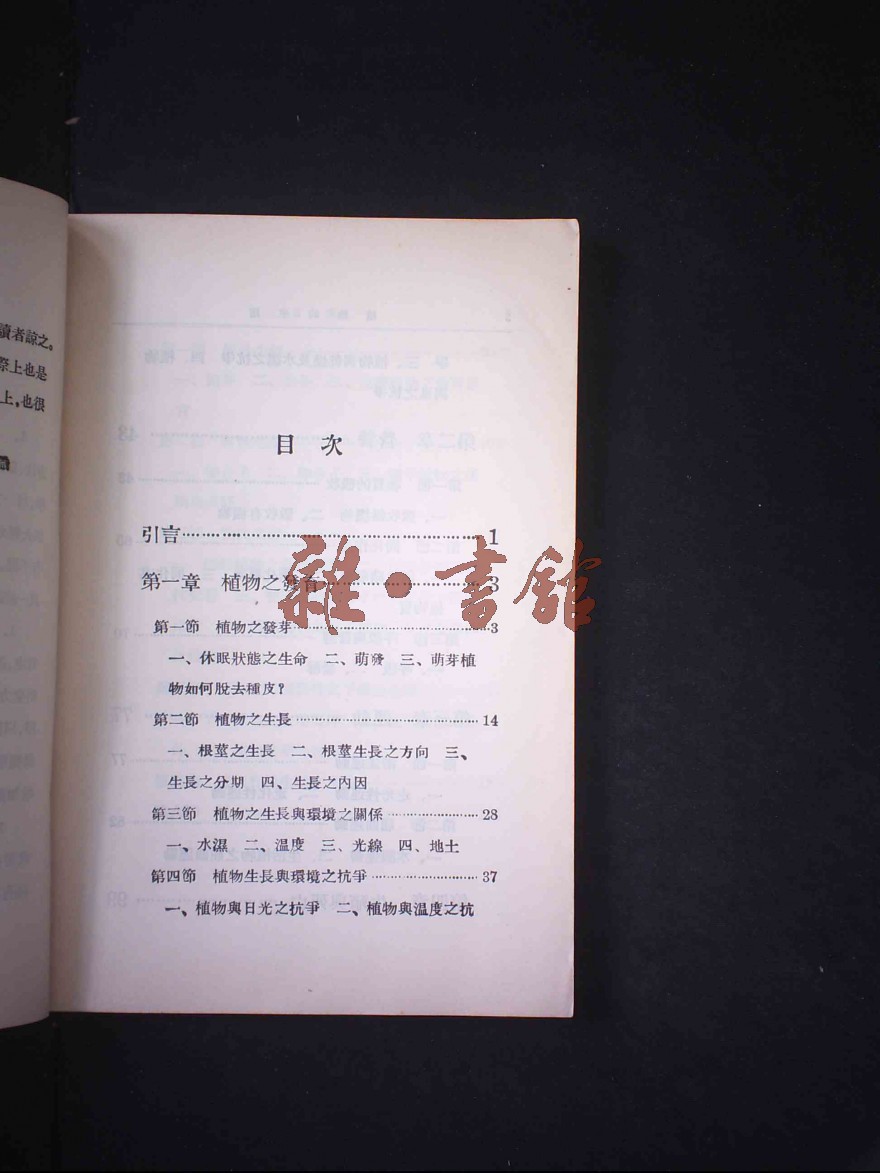 讀者諒之。
際上也是
上,也很
目 次
引言……1
第一章 植物之發育……3
第一節 植物之發芽……3
一、休眠狀態之生命 二、萌發 三、萌芽植
物如何脫去種皮?
第二節 植物之生長……14
一、根莖之生長 二、根莖生長之方向 三、
生長之分期 四、生長之內因
第三節 植物之生長與環境之關係……28
一、水濕 二、溫度 三、光線 四、地土
第四節 植物生長與環境之抗爭……37
一、植物與日光之抗爭 二、植物與溫度之抗
雜·書館